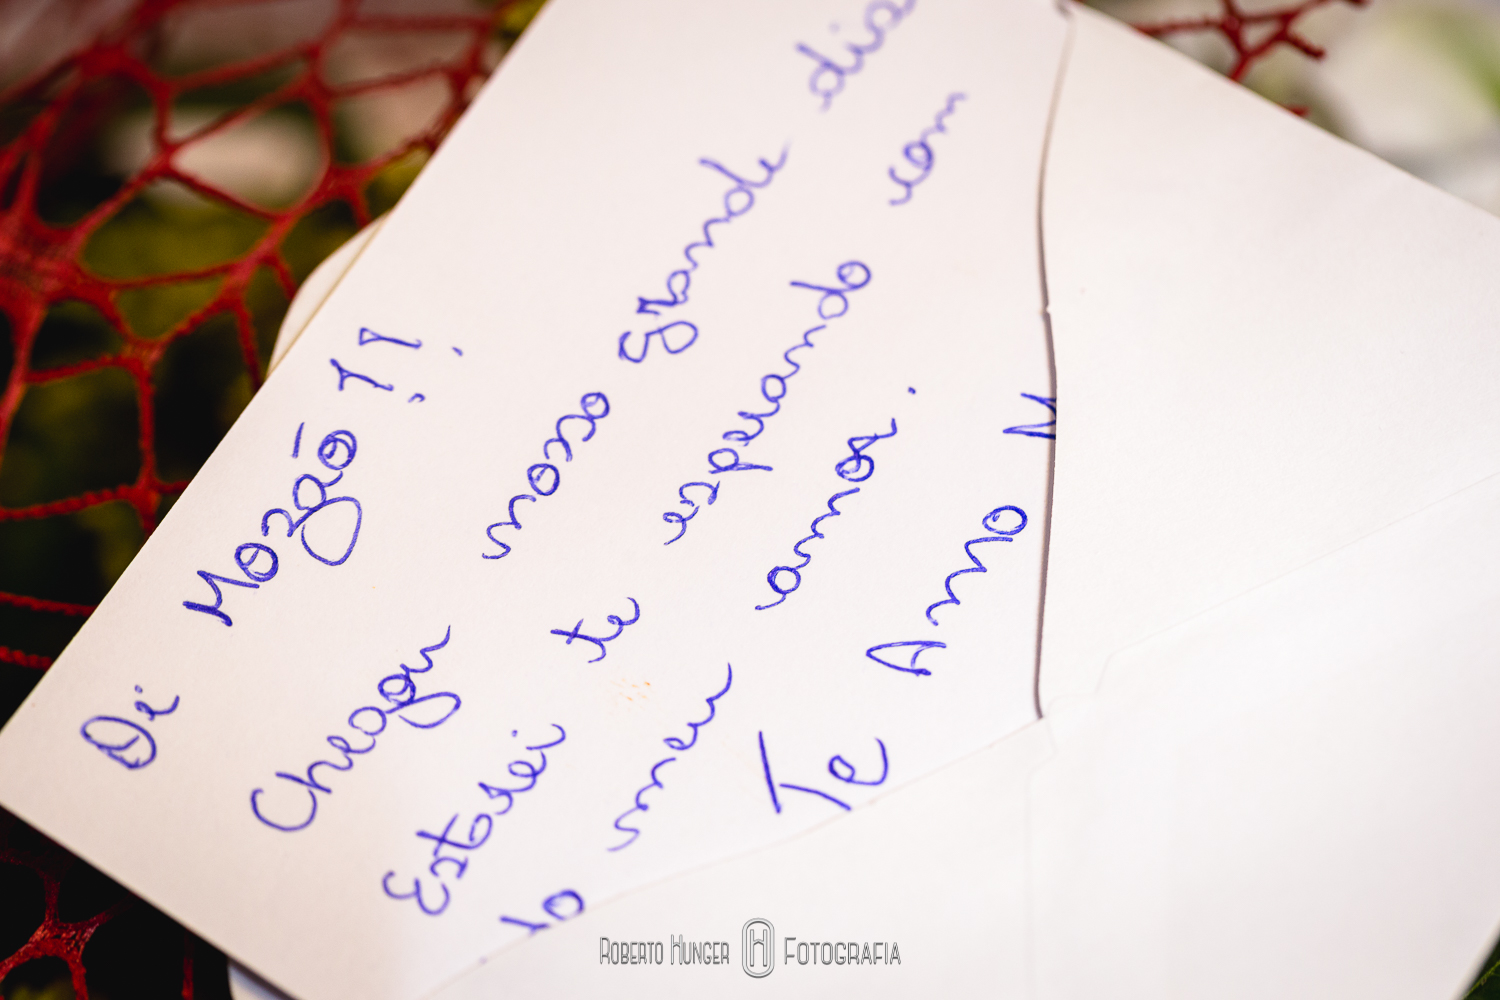 Oi Mozão!!
Chegou nosso grande dia
Estarei te esperando com
meu amor.
Te Amo
ROBERTO HUNGER FOTOGRAFIA